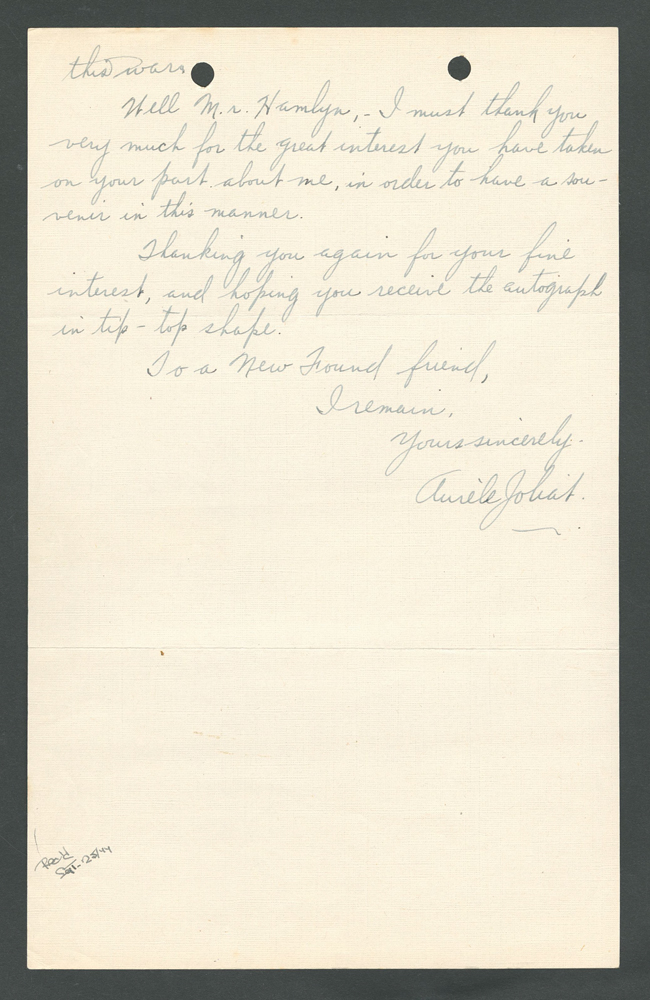 this war.
Well M.r. Hamlyn,- I must thank you
very much for the great interest you have taken
on your part about me, in order to have a sou-
venir in this manner.
Thanking you again for your fine
interest, and hoping you receive the autograph
in tip-top shape.
To a New Found friend,
I remain,
Yours sincerely.
Aurèle Joliat.
Rec'd
Sept. 23/44